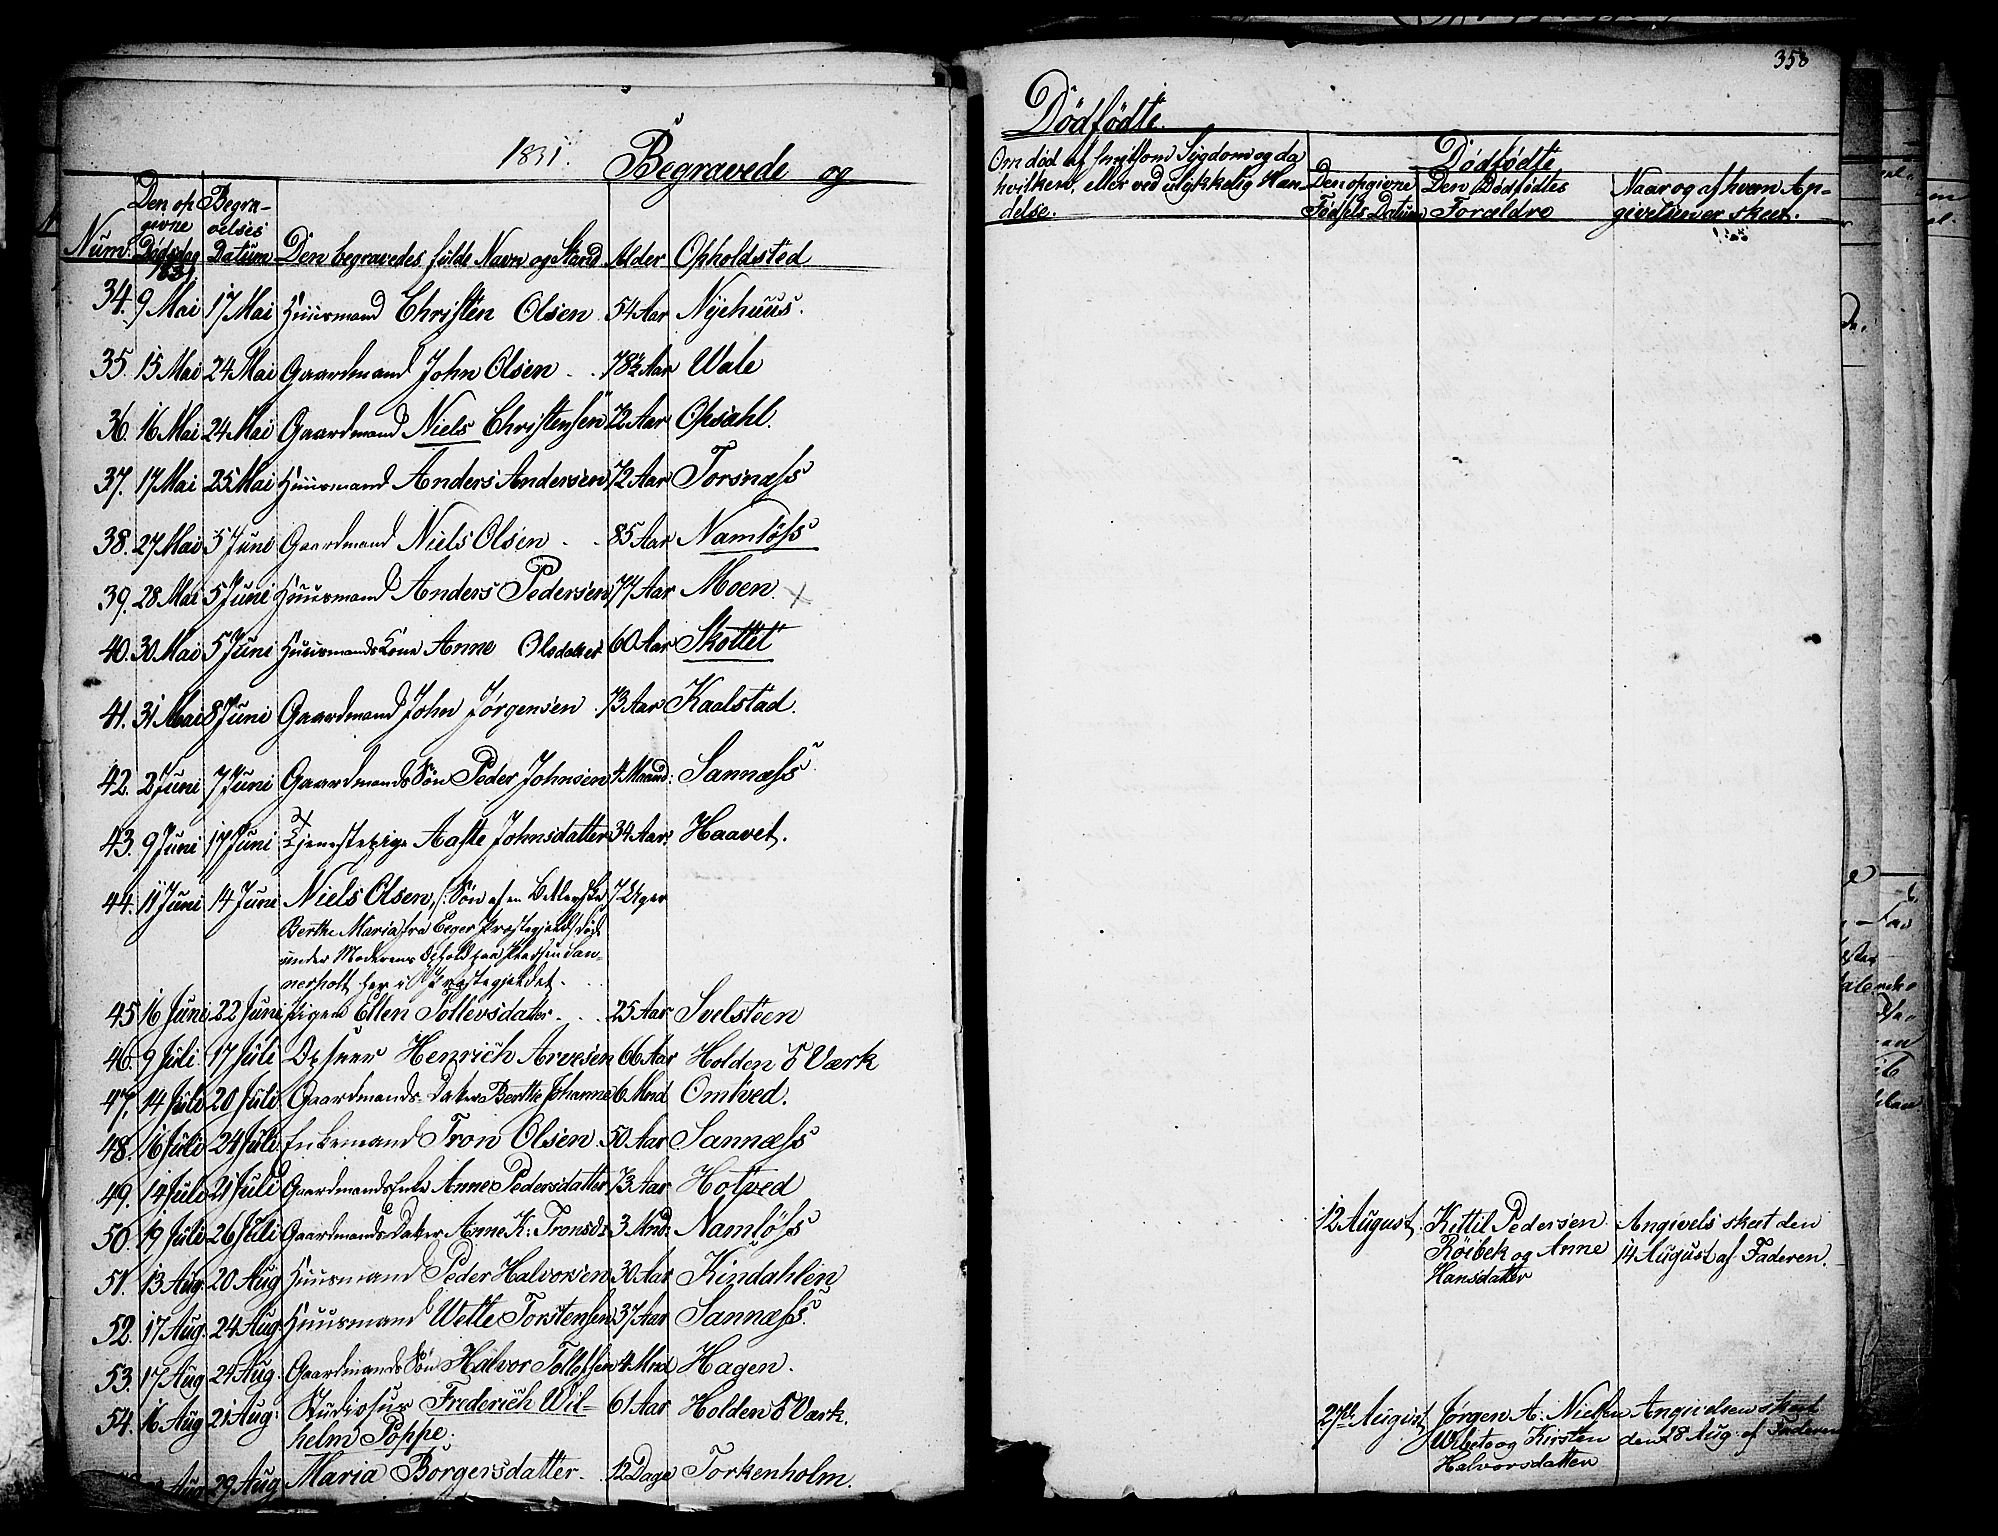 358
1831. Begravede og
Num: Den opgivne Dødsdag 1831 Begravelses Datum Den begravedes fulde Navn og Stand Alder Opholdsted
34. 9 Mai 17 Mai Huusmand Christen Olsen 54 Aar Nyehuus.
35. 15 Mai 24 Mai Gaardmand John Olsen - . 78½ Aar Wale
36. 16 Mai 24 Mai Gaardmand Niels Christensen 72 Aar Opsahl.
37. 17 Mai 25 Mai Huusmand Anders Andersen 72 Aar Torsnæss
38. 27 Mai 5 Juni Gaardmand Niels Olsen - . 85 Aar Namløss
39. 28 Mai 5 Juni Huusmand Anders Pedersen 77 Aar Moen.
40. 30 Mai 5 Juni Huusmands Kone Anne Olsdatter 60 Aar Skottet
41. 31 Mai 8 Juni Gaardmand John Jørgensen . 73 Aar Kaalstad.
42. 2 Juni 7 Juni Gaardmands Søn Peder Johnsen 4 Maand: Sannæss
43. 9 Juni 17 Juni Tjenestepige Aaste Johnsdatter 34 Aar. Haavet.
44. 11 Juni 14 Juni Niels Olsen, /: Søn af en Betlerske 7 Uger
Berthe Maria fra Eeger Præstegjeld, død
under Moderens Ophold paa Pladsen San-
nerholt her i Præstegjeldet.
45 16 Juni 22 Juni Pigen Ellen Tollevsdatter - . . 25 Aar Svelsteen
46. 9 Juli 17 Juli Opseer Henrich Arvesen 66 Aar Holden S Værk
47. 14 Juli 20 Juli Gaardmands Datter Berthe Johanne 6 Mnd Omtved.
48. 16 Juli 24 Juli Enkemand Tron Olsen 50 Aar Sannæss
49. 14 Juli 21 Juli Gaardmands Enke Anne Pedersdatter 73 Aar Holtved
50. 19 Juli 26 Juli Gaardmands Datter Anne K: Tronsd: 3 Mnd: Namløss
51. 13 Aug. 20 Aug Huusmand Peder Halvorsen 30 Aar Kindahlen
52. 17 Aug. 24 Aug Huusmand Wetle Torstensen 37 Aar Sannæss.
53. 17 Aug 24 Aug. Gaardmands Søn Halvor Tollefsen 4 Mnd Hagen.
54. 16 Aug 21 Aug: Studiosus Frederich Wil- 61 Aar Holden S Værk.
helm Poppe.
Aug 29 Aug Maria Borgersdatter - 12 Dage Torkenholm.
Dødfødte.
Om død af smitsom Sygdom og da
hvilken, eller ved ulykkelig Hæn-
delse.
Den opgivne
Fødsels Datum
Dødfødte
Den Dødfødtes
Forældre
Naar og af hvem An-
givelsen er skeet.
12 August, Kittil Pedersen Angivels skeet den
Røibek og Anne 14 August af Faderen.
Hansdatter
27de August Jørgen A: Nielsen Angivelsen skeet
Wibeto og Kirsten den 28 Aug. af Faderen
Halvorsdatter